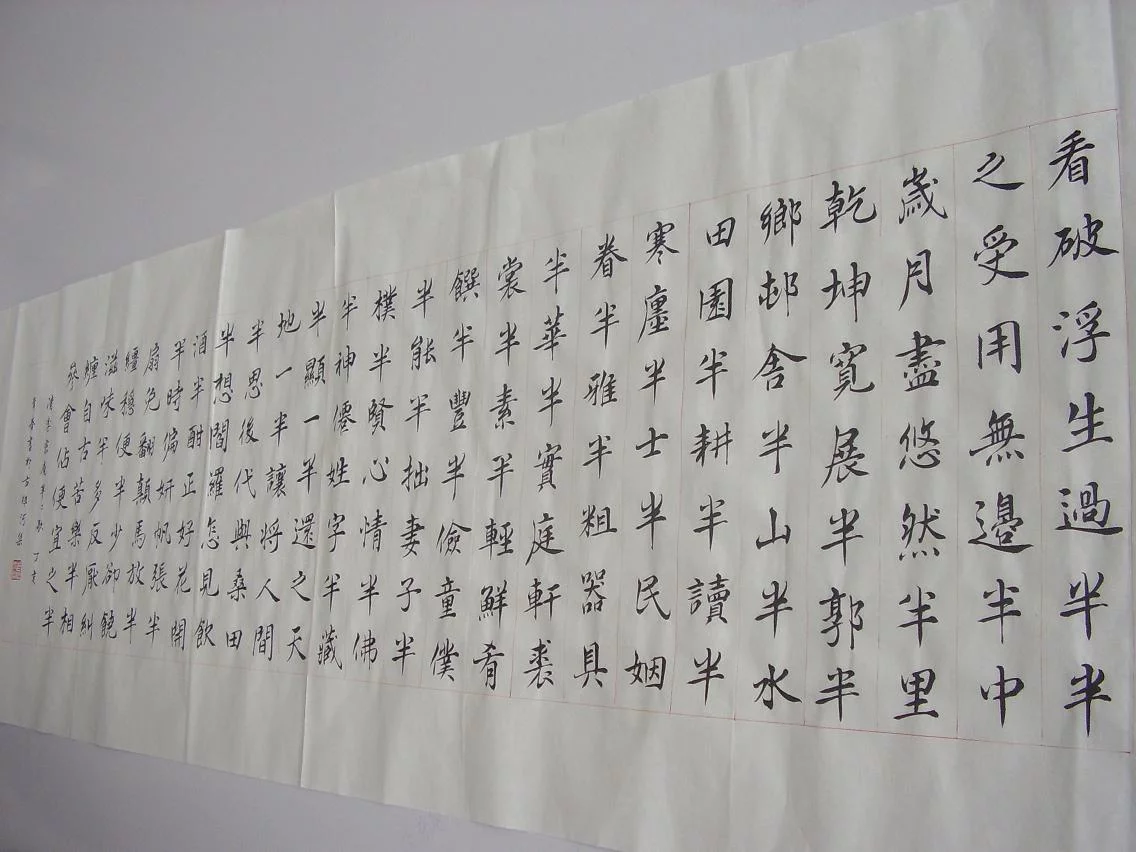 看破浮生過半半
之受用無邊半中
歲月盡悠然半里
乾坤寬展半郭半
鄉邨舍半山半水
田園半耕半讀半
寒廛半士半民姻
眷半雅半粗器具
半華半實庭軒裘
裳半素半輕鮮肴
饌半豐半儉童僕
半能半拙妻子半
樸半賢心情半佛
半神僊姓字半藏
半顯一半還之天
地一半讓將人間
半思後代與桑田
半想閻羅怎見飲
酒半酣正好花開
半時偏妍帆張半
扇免翻顛馬放半
繮穩便半少卻饒
滋味半多反厭糾
纏自古苦樂半相
參會佔便宜之半
清李密庵半半歌 丁亥
年春書於古